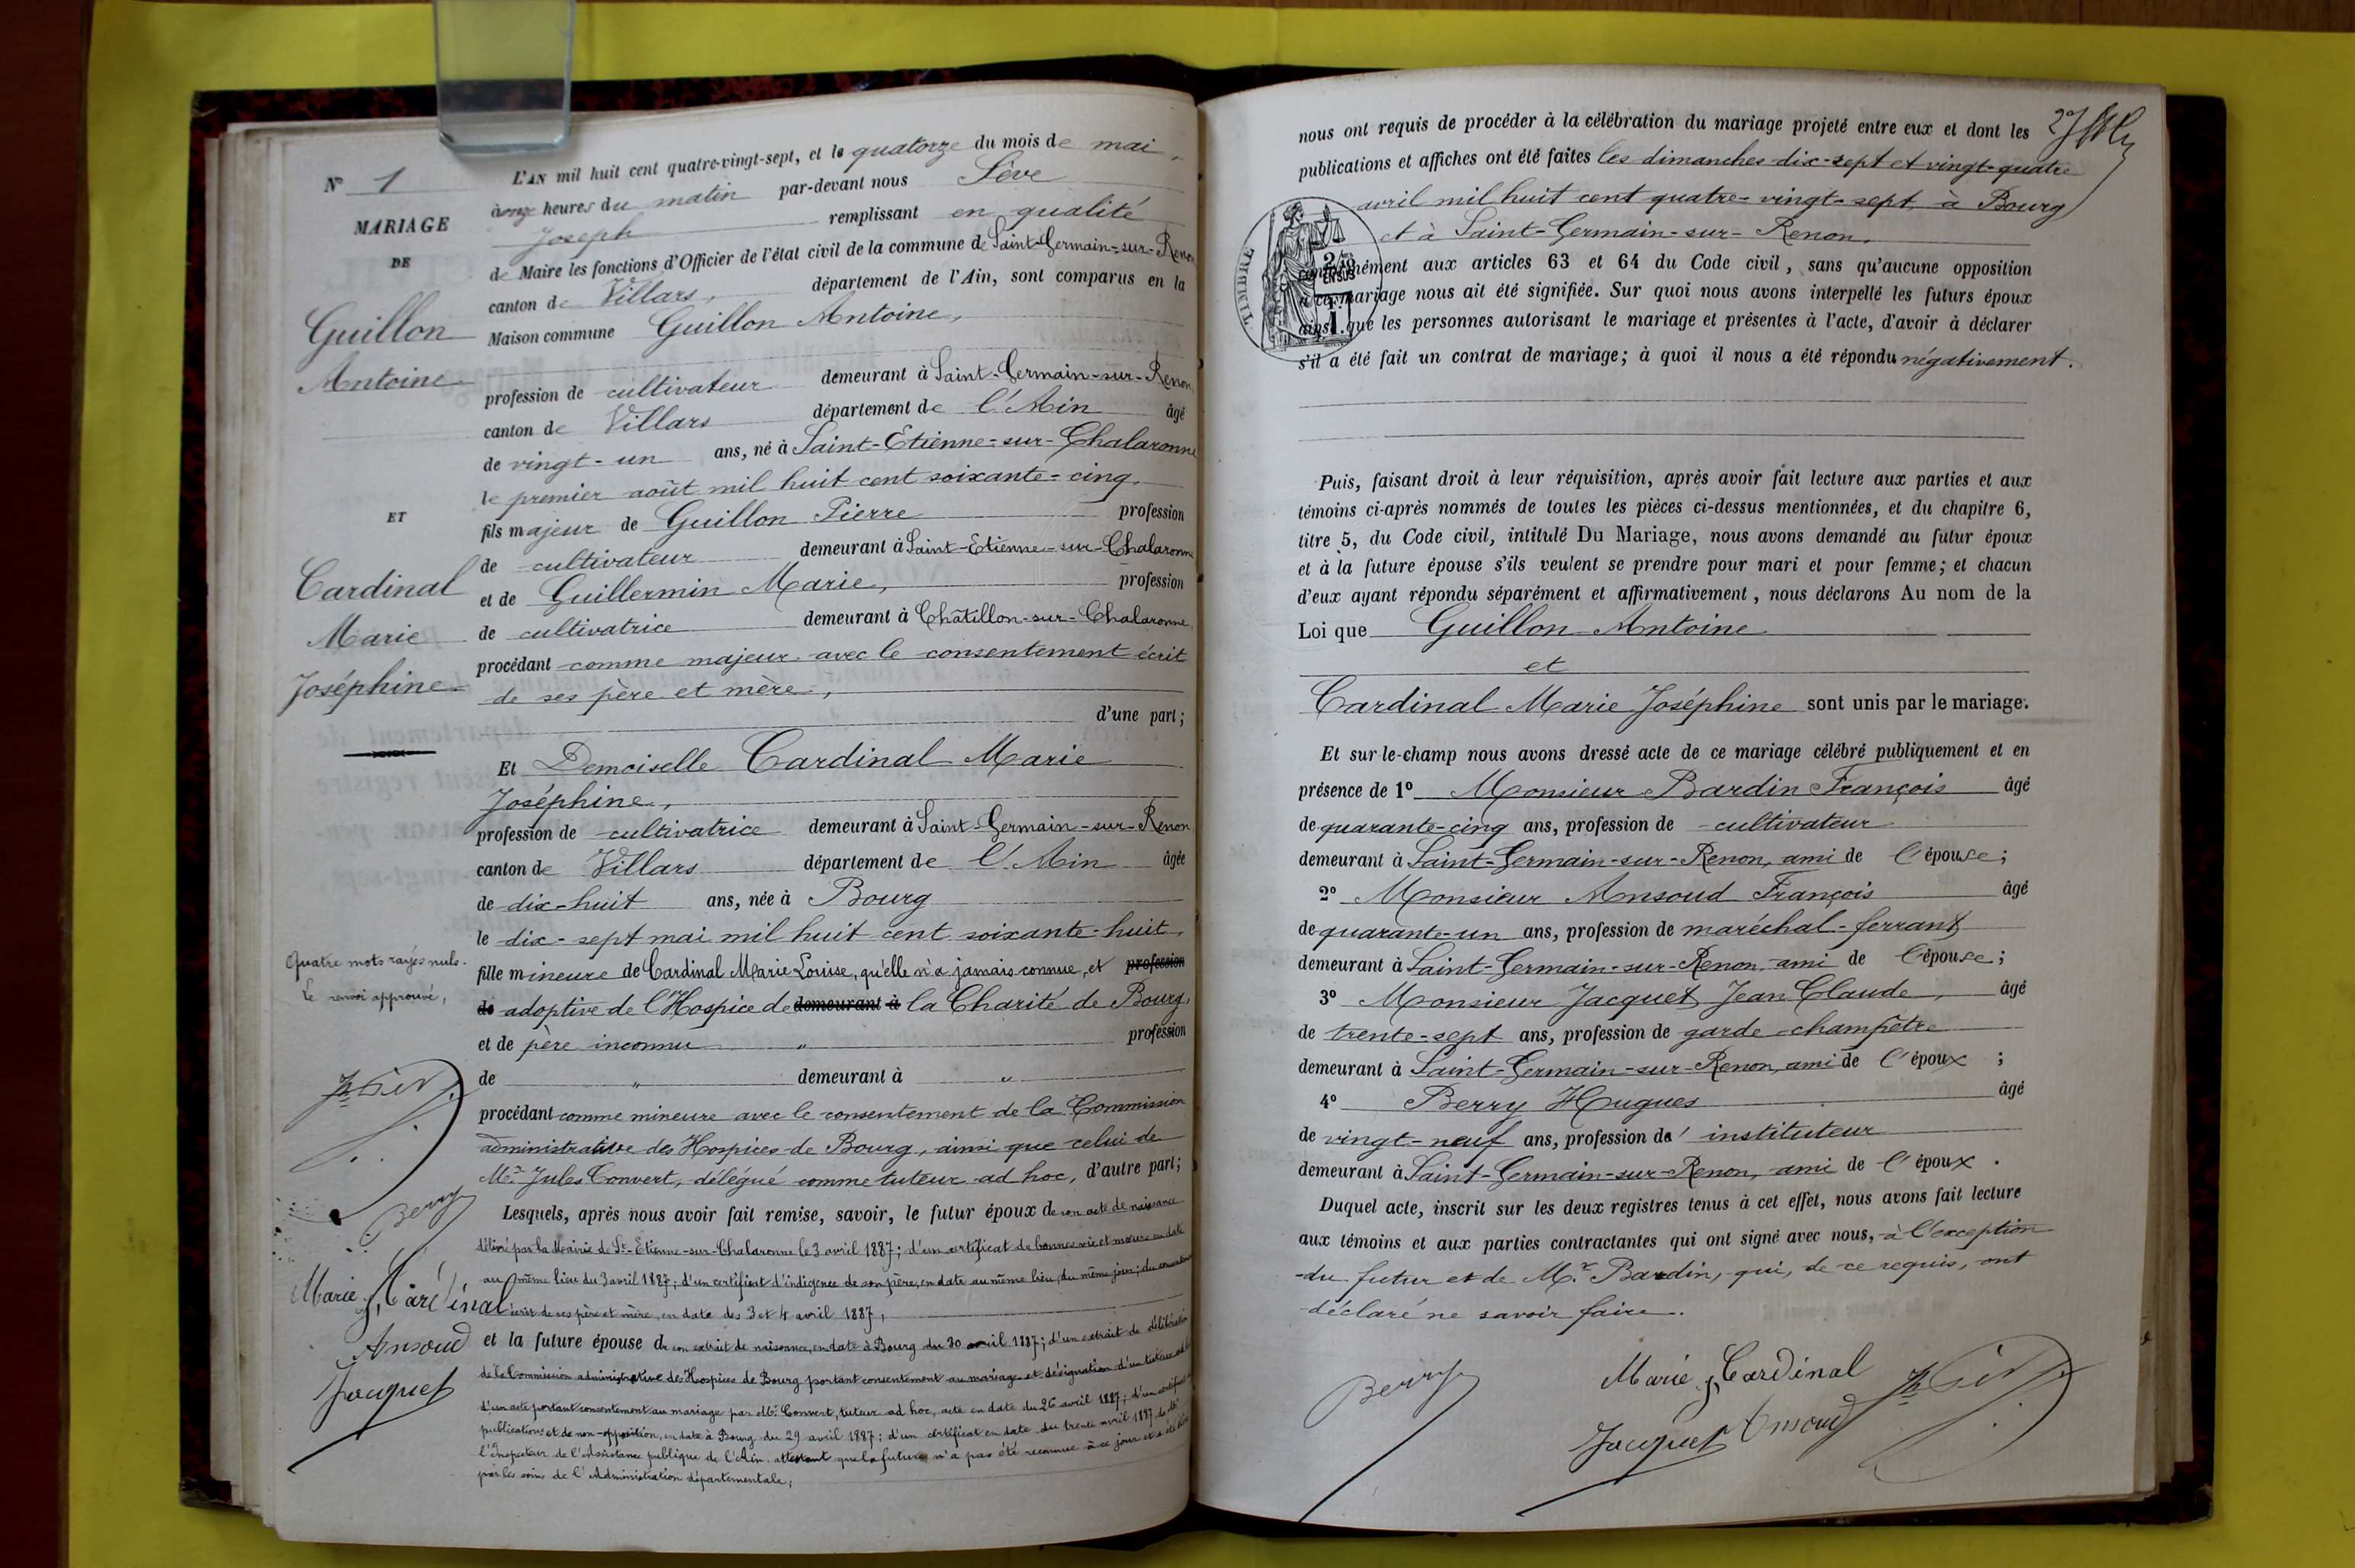 N° 1
MARIAGE
DE
Guillon
Antoine
ET
Cardinal
Marie
Joséphine
Quatre mots rayés nuls.
Le renvoi approuvé,
Berry
Marie J. Cardinal
Ansoud
Jacquet
L'AN mil huit cent quatre-vingt-sept, et le quatorze du mois de mai,
à onze heures du matin par-devant nous Sève
Joseph remplissant en qualité
de Maire les fonctions d'Officier de l'état civil de la commune de Saint-Germain-sur-Renon
canton de Villars, département de l'Ain, sont comparus en la
Maison commune Guillon Antoine,
profession de cultivateur demeurant à Saint-Germain-sur-Renon,
canton de Villars département de l'Ain âgé
de vingt-un ans, né à Saint-Etienne-sur-Chalaronne
le premier août mil huit cent soixante-cinq,
fils majeur de Guillon Pierre profession
de cultivateur demeurant à Saint-Etienne-sur-Chalaronne
et de Guillermin Marie, profession
de cultivatrice demeurant à Châtillon-sur-Chalaronne,
procédant comme majeur avec le consentement écrit
de ses père et mère,
d'une part;
Et Demoiselle Cardinal Marie
Joséphine,
profession de cultivatrice demeurant à Saint-Germain-sur-Renon
canton de Villars département de l'Ain âgée
de dix-huit ans, née à Bourg
le dix-sept mai mil huit cent soixante-huit,
fille mineure de Cardinal Marie Louise, qu'elle n'a jamais connue, et profession
de adoptive de l'Hospice de demeurant à la Charité de Bourg,
et de père inconnu " profession
de " demeurant à "
procédant comme mineure avec le consentement de la Commission
administrative des Hospices de Bourg, ainsi que celui de
Mr. Jules Convert, délégué comme tuteur ad hoc, d'autre part;
Lesquels, après nous avoir fait remise, savoir, le futur époux de son acte de naissance
délivré par la Mairie de St-Etienne-sur-Chalaronne le 3 avril 1887; d'un certificat de bonnes vie et mœurs en date
au même lieu du 3 avril 1887; d'un certificat d'indigence de son père, en date au même lieu, du même jour; du consentement
écrit de ses père et mère, en date des 3 et 4 avril 1887,
et la future épouse de son extrait de naissance, en date à Bourg du 30 avril 1887; d'un extrait de délibération
de la Commission administrative des Hospices de Bourg portant consentement au mariage et désignation d'un tuteur ad hoc
d'un acte portant consentement au mariage par Mr. Convert, tuteur ad hoc, acte en date du 26 avril 1887; d'un certificat
publications et de non-opposition, en date à Bourg du 29 avril 1887; d'un certificat en date du trente avril 1887 de Mr
l'Inspecteur de l'Assistance publique de l'Ain attestant que la future n'a pas été reconnue à ce jour et a été
par les soins de l'Administration départementale;
nous ont requis de procéder à la célébration du mariage projeté entre eux et dont les
publications et affiches ont été faites les dimanches dix-sept et vingt-quatre
avril mil huit cent quatre-vingt-sept, à Bourg
et à Saint-Germain-sur-Renon,
TIMBRE
conformément aux articles 63 et 64 du Code civil, sans qu'aucune opposition
à ce mariage nous ait été signifiée. Sur quoi nous avons interpellé les futurs époux
ainsi que les personnes autorisant le mariage et présentes à l'acte, d'avoir à déclarer
s'il a été fait un contrat de mariage; à quoi il nous a été répondu négativement.
Puis, faisant droit à leur réquisition, après avoir fait lecture aux parties et aux
témoins ci-après nommés de toutes les pièces ci-dessus mentionnées, et du chapitre 6,
titre 5, du Code civil, intitulé Du Mariage, nous avons demandé au futur époux
et à la future épouse s'ils veulent se prendre pour mari et pour femme; et chacun
d'eux ayant répondu séparément et affirmativement, nous déclarons Au nom de la
Loi que Guillon Antoine
et
Cardinal Marie Joséphine sont unis par le mariage.
Et sur-le-champ nous avons dressé acte de ce mariage célébré publiquement et en
présence de 1° Monsieur Bardin François âgé
de quarante-cinq ans, profession de cultivateur
demeurant à Saint-Germain-sur-Renon, ami de l'épouse;
2° Monsieur Ansoud François âgé
de quarante-un ans, profession de maréchal-ferrant
demeurant à Saint-Germain-sur-Renon, ami de l'épouse;
3° Monsieur Jacquet Jean Claude, âgé
de trente-sept ans, profession de garde-champêtre
demeurant à Saint-Germain-sur-Renon, ami de l'époux;
4° Berry Hugues âgé
de vingt-neuf ans, profession d'instituteur
demeurant à Saint-Germain-sur-Renon, ami de l'époux.
Duquel acte, inscrit sur les deux registres tenus à cet effet, nous avons fait lecture
aux témoins et aux parties contractantes qui ont signé avec nous, à l'exception
du futur et de Mr. Bardin, qui, de ce requis, ont
déclaré ne savoir faire.
Berry
Marie J. Cardinal
Jacquet Ansoud